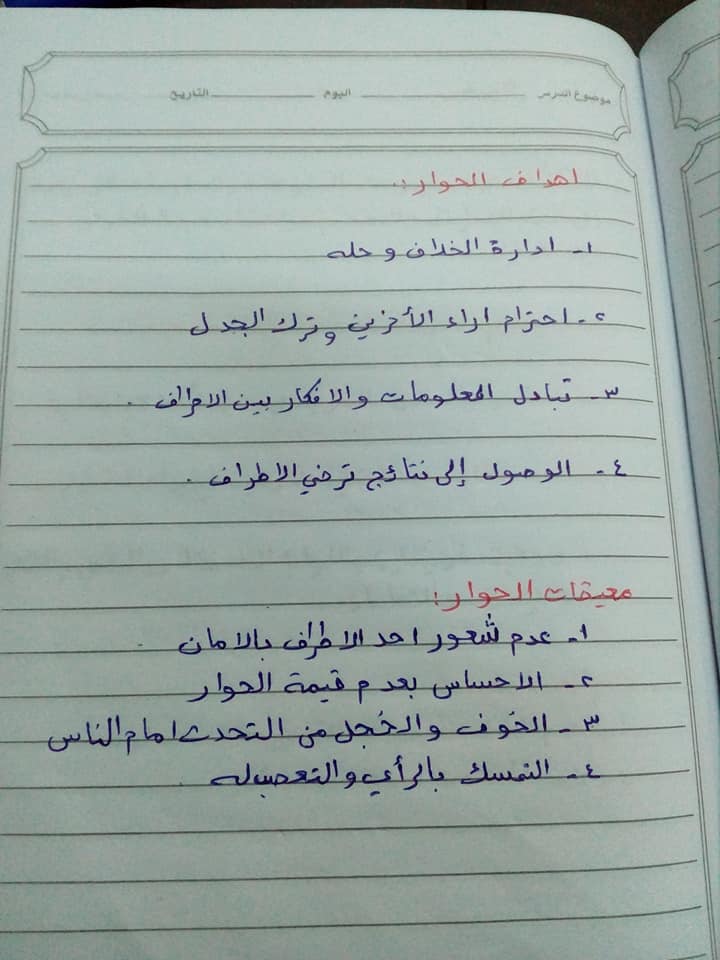 موضوع الدرس ـــــــــــــ اليوم ـــــــــــــ التاريخ
اهداف الحوار:.
١- ادارة الخلاف وحله
٢- احترام اراء الأخرين وترك الجدل
٣- تبادل المعلومات والافكار بين الاطراف .
٤- الوصول إلى نتائج ترضي الاطراف .
معيقات الحوار:
١- عدم شعور احد الاطراف بالامان .
٢- الاحساس بعدم قيمة الحوار
٣- الخوف والخجل من التحدث امام الناس
٤- التمسك بالرأي والتعصب له